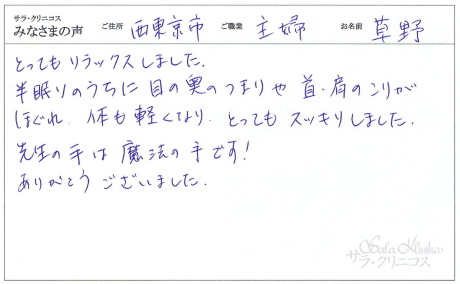 サラ・クリニコス
みなさまの声 ご住所 西東京市 ご職業 主婦 お名前 草野
とってもリラックスしました。
半眠りのうちに目の奥のつまりや首・肩のこりが
ほぐれ、体も軽くなり、とってもスッキリしました。
先生の手は魔法の手です!
ありがとうございました。
Sala Klinikos
サラ・クリニコス